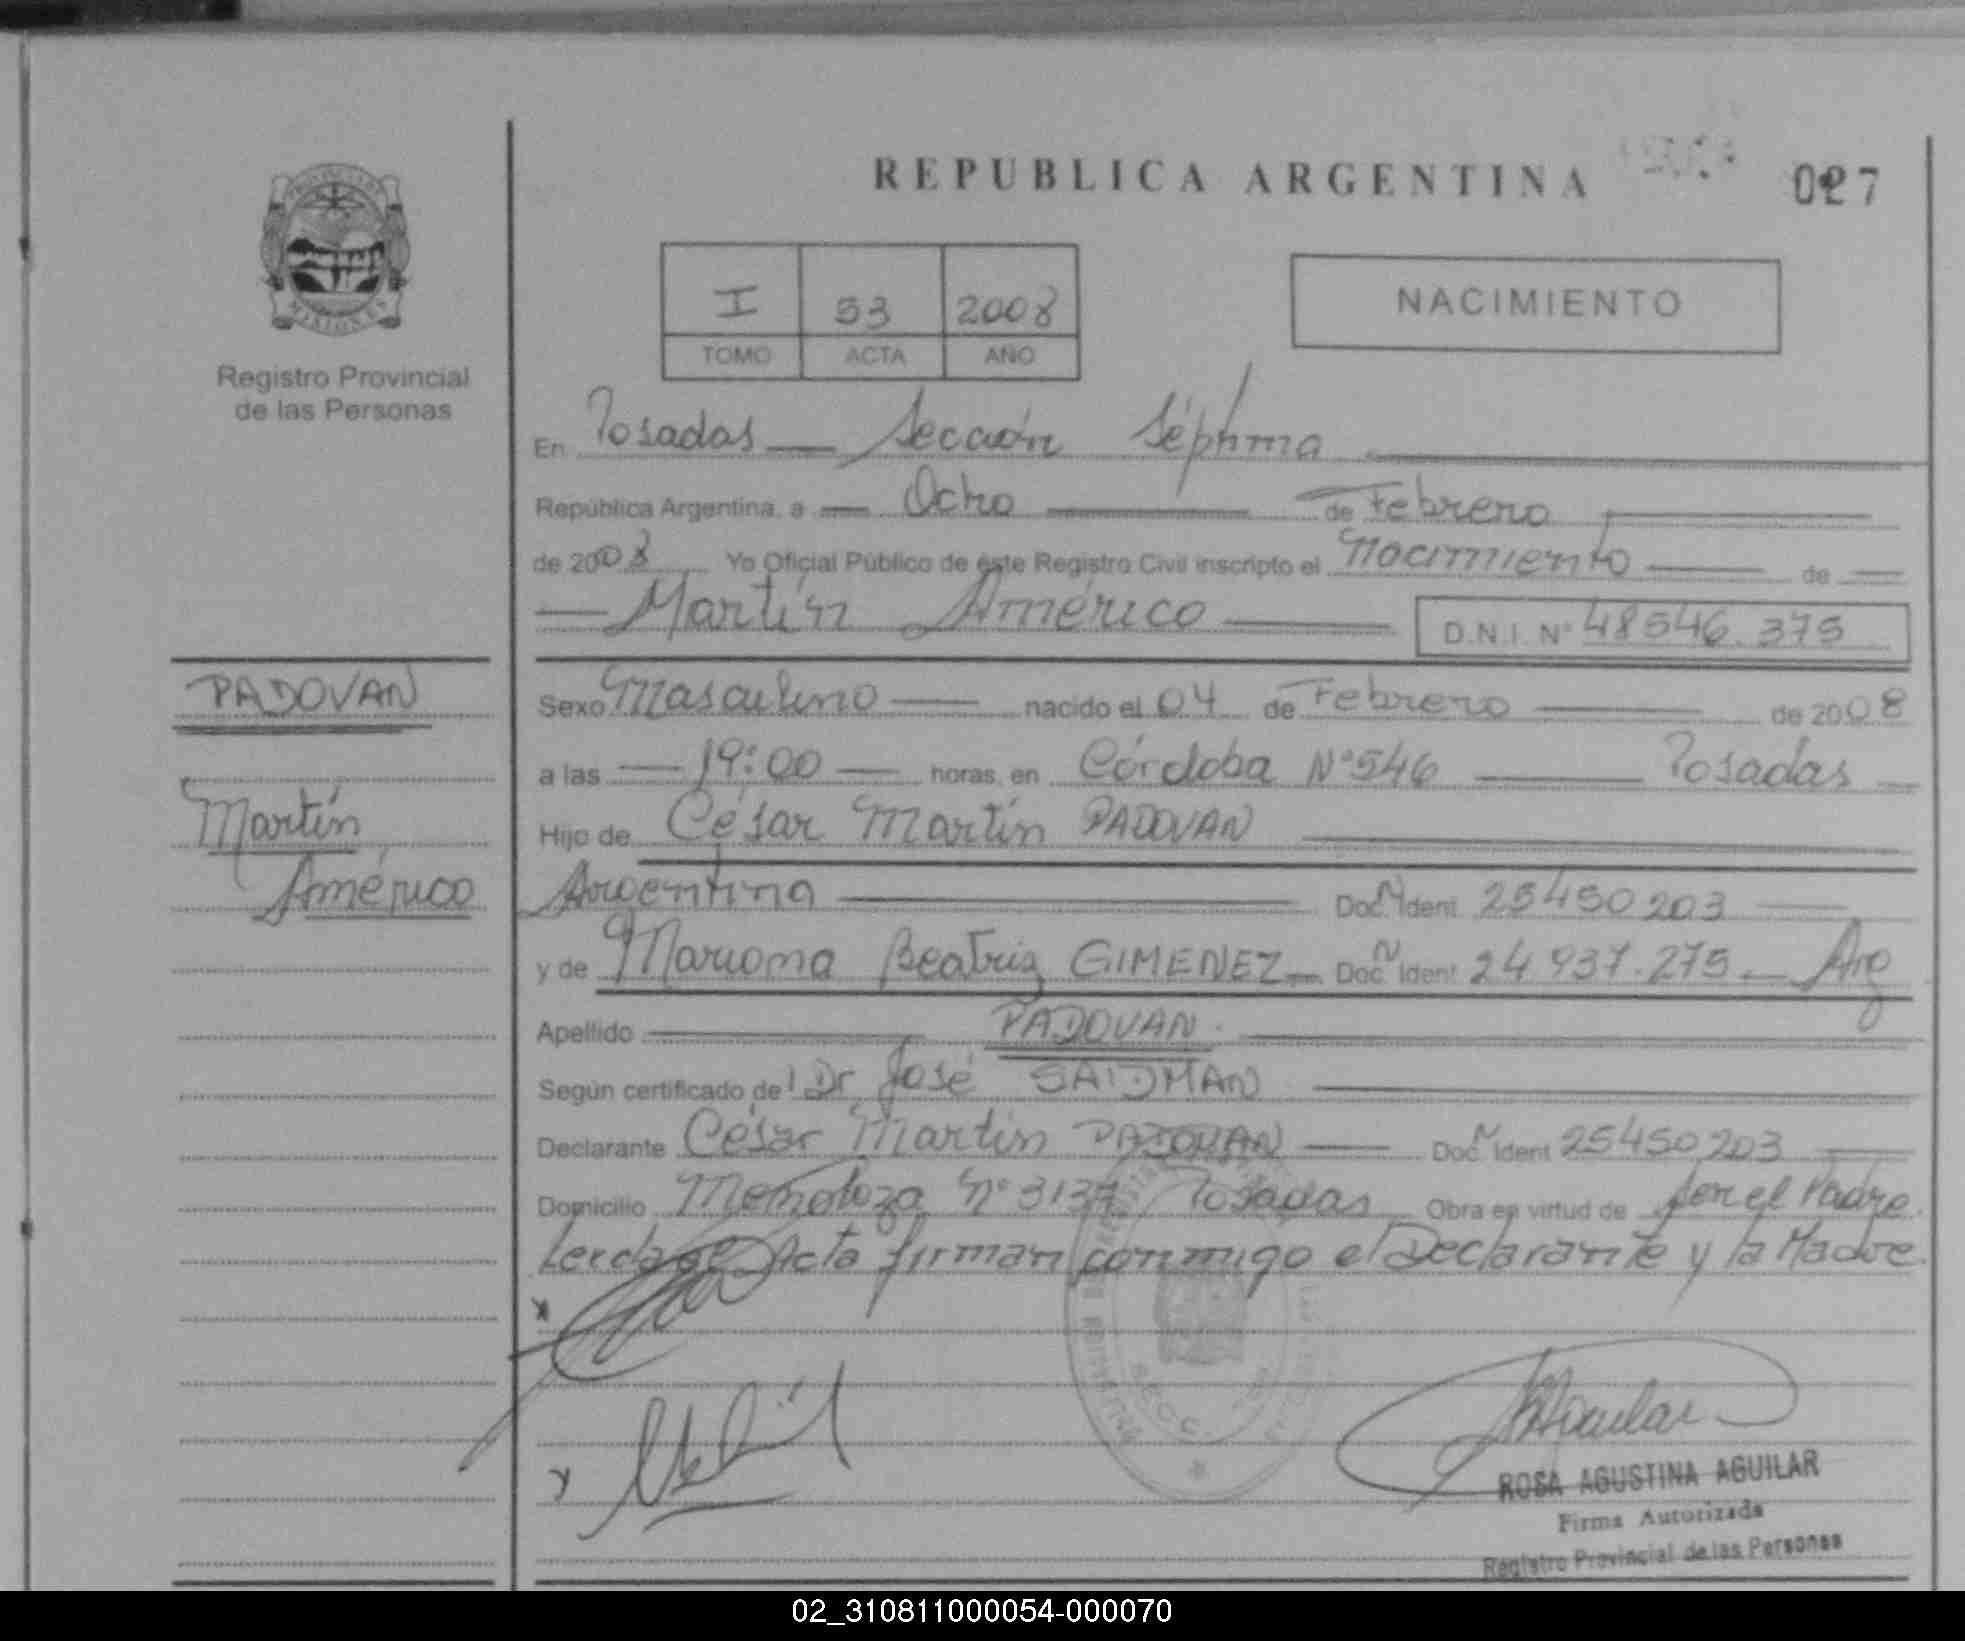 REPUBLICA ARGENTINA
027
I 53 2008
TOMO ACTA AÑO
NACIMIENTO
MISIONES
Registro Provincial
de las Personas
En Posadas — Sección Séptima
República Argentina, a — Ocho — de Febrero —
de 2008 Yo Oficial Público de éste Registro Civil inscripto el Nacimiento — de —
— Martín Américo — D.N.I. N° 48546.375
PADOVAN
Martín
Américo
Sexo Masculino — nacido el 04 de Febrero — de 2008
a las — 19:00 — horas, en Córdoba N° 546 — Posadas —
Hijo de César Martín PADOVAN —
Argentina — Doc. N Ident 25450203 —
y de Mariana Beatriz GIMENEZ — Doc N Ident 24.937.275 — Arg
Apellido — PADOVAN. —
Según certificado de Dr José SAIDMAN —
Declarante César Martín PADOVAN — Doc N Ident 25450203 —
Domicilio Mendoza N° 3137 Posadas Obra en virtud de ser el Padre.
Leida el Acta firman conmigo el Declarante y la Madre
x
x
ROSA AGUSTINA AGUILAR
Firma Autorizada
Registro Provincial de las Personas
02_310811000054-000070